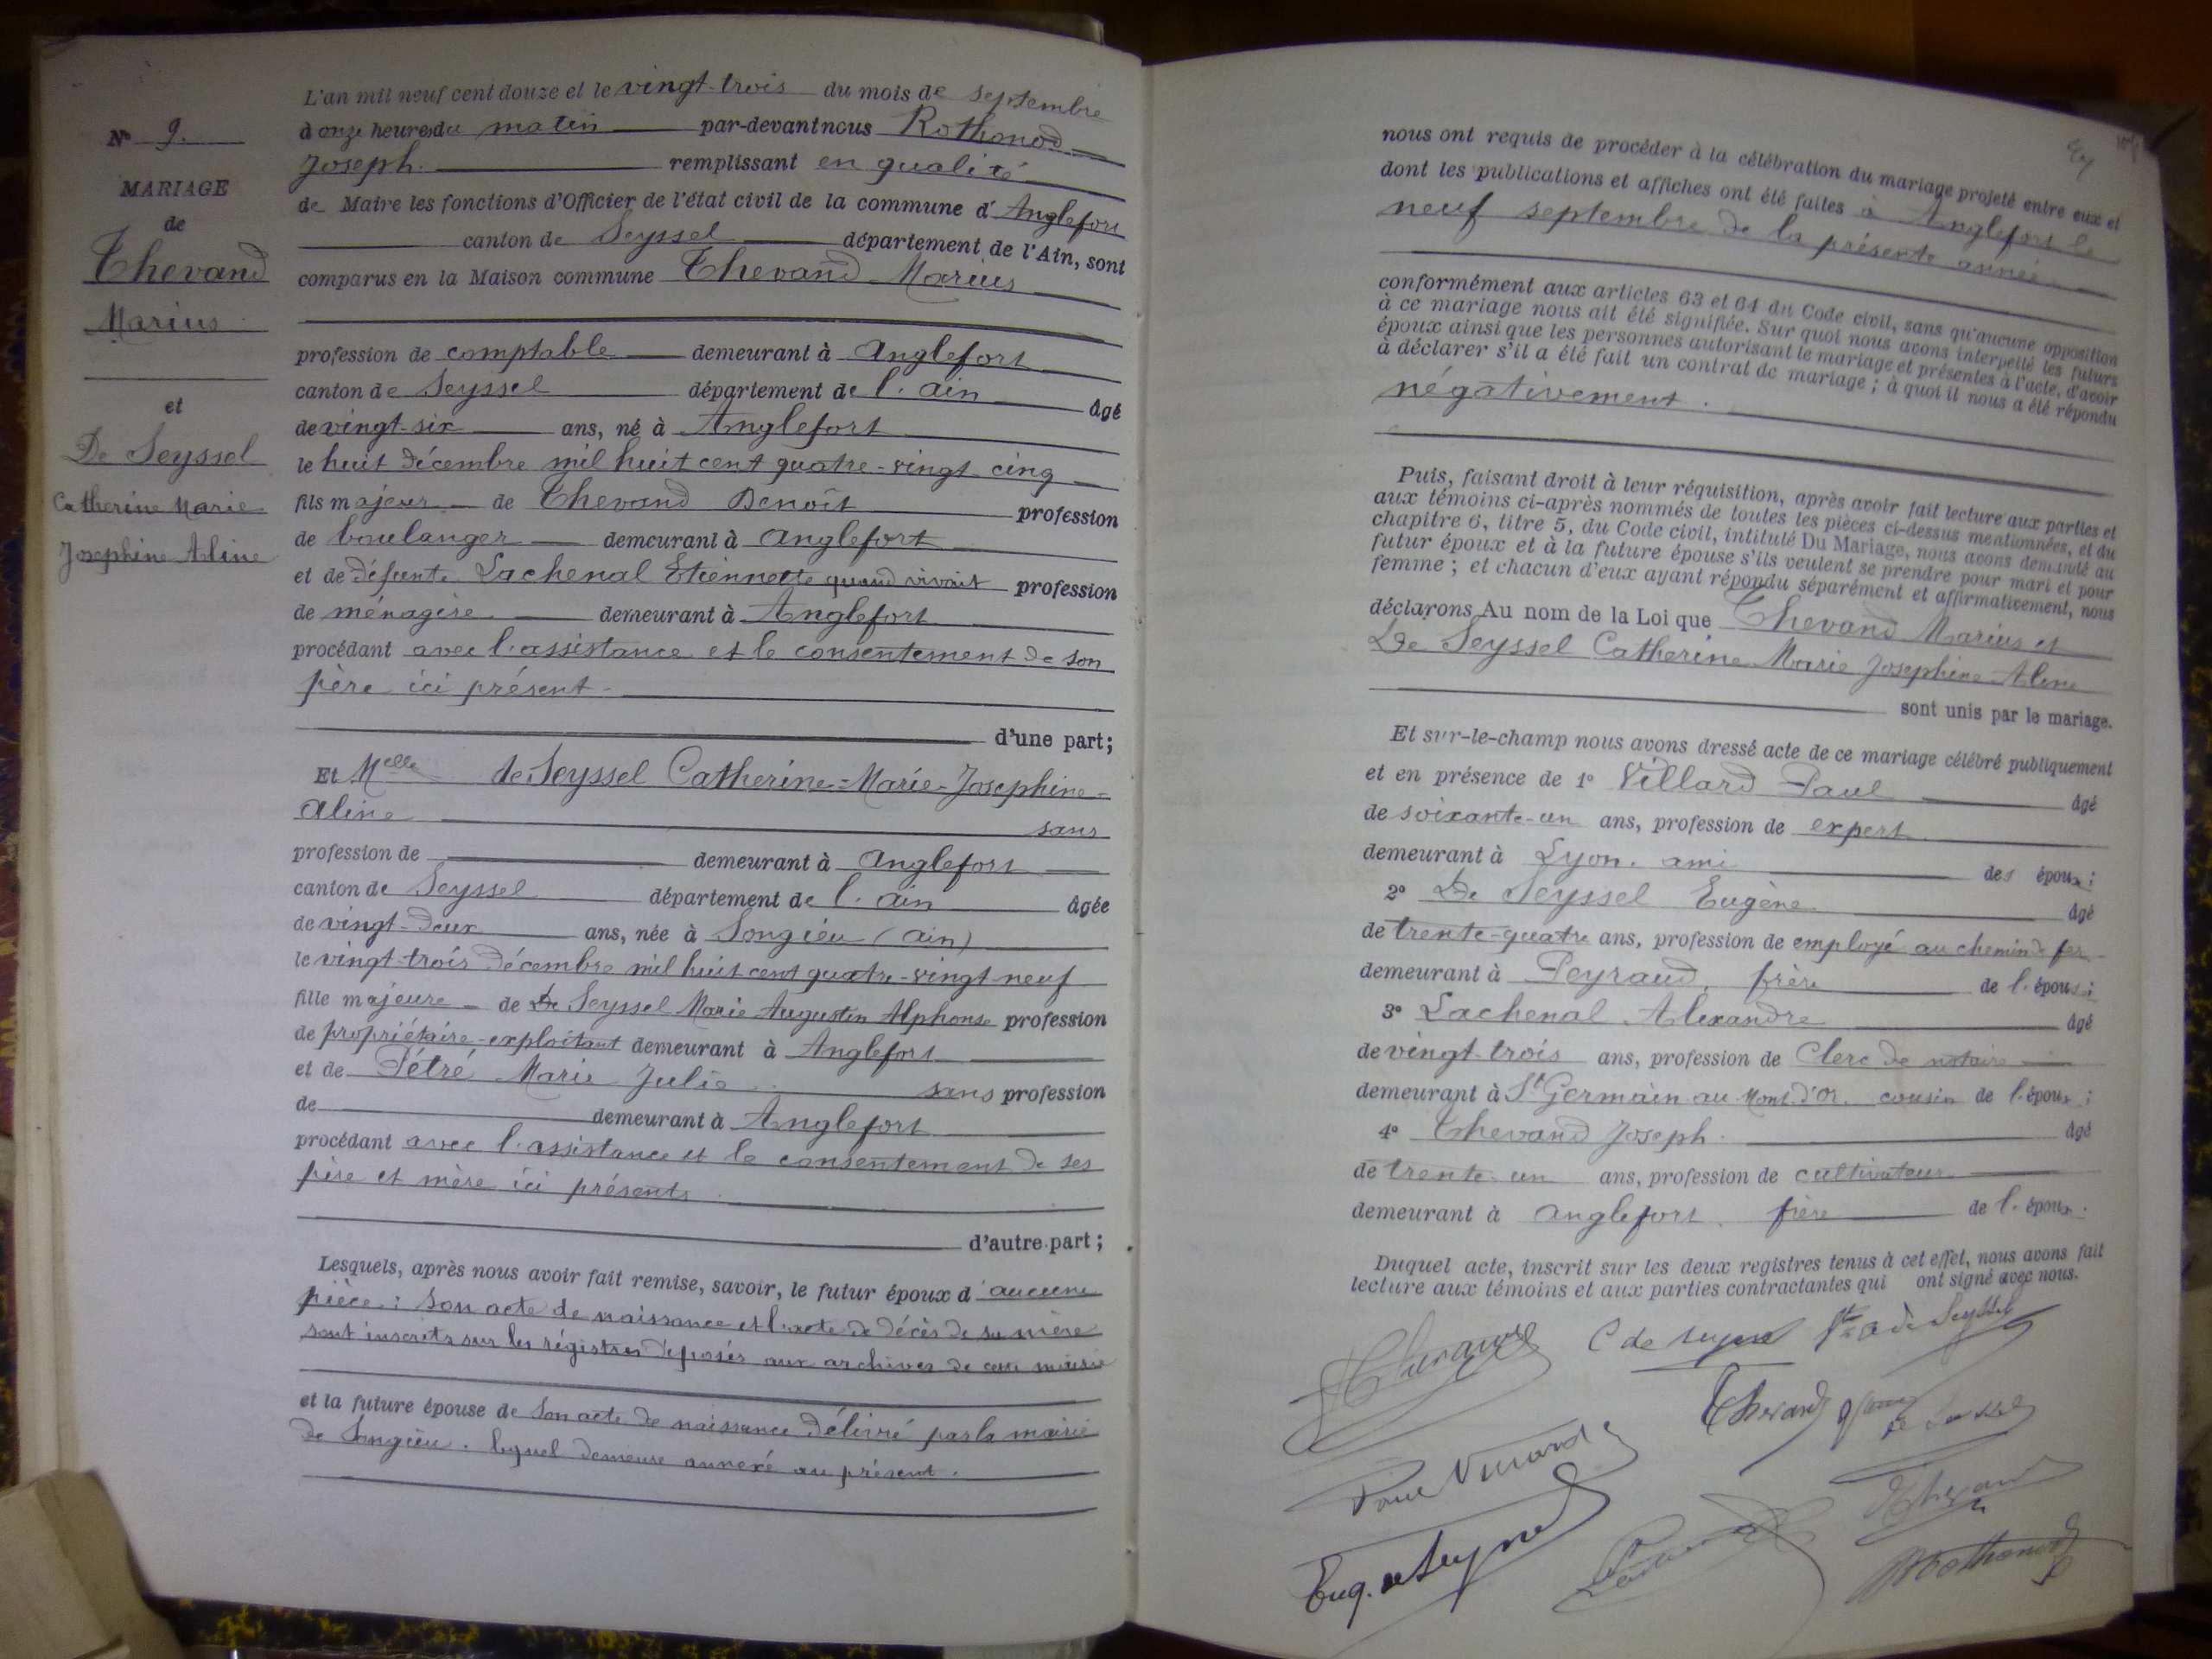 N° 9.
MARIAGE
de
Thevand
Marius
et
De Seyssel
Catherine Marie
Josephine Aline
L'an mil neuf cent douze et le vingt-trois du mois de septembre
à onze heures du matin par-devant nous Rothonod
Joseph. remplissant en qualité
de Maire les fonctions d'Officier de l'état civil de la commune d' Anglefort
canton de Seyssel département de l'Ain, sont
comparus en la Maison commune Thevand Marius
profession de comptable demeurant à Anglefort
canton de Seyssel département de l'Ain âgé
de vingt-six ans, né à Anglefort
le huit décembre mil huit cent quatre-vingt-cinq
fils majeur de Thevand Benoît profession
de boulanger demeurant à Anglefort
et de défunte Lachenal Etiennette quand vivait profession
de ménagère. demeurant à Anglefort
procédant avec l'assistance et le consentement de son
père ici présent
d'une part;
Et Melle de Seyssel Catherine-Marie-Josephine-
Aline sans
profession de demeurant à Anglefort
canton de Seyssel département de l'Ain âgée
de vingt-deux ans, née à Songieu (Ain)
le vingt-trois décembre mil huit cent quatre-vingt neuf
fille majeure de De Seyssel Marie Augustin Alphonse profession
de propriétaire-exploitant demeurant à Anglefort
et de Pétré Marie Julie sans profession
de demeurant à Anglefort
procédant avec l'assistance et le consentement de ses
père et mère ici présents
d'autre part;
Lesquels, après nous avoir fait remise, savoir, le futur époux d'aucune
pièce: son acte de naissance et l'acte de décès de sa mère
sont inscrits sur les régistres déposés aux archives de cette mairie
et la future épouse de son acte de naissance délivré par la mairie
de Songieu. lequel demeure annexé au présent.
nous ont requis de procéder à la célébration du mariage projeté entre eux et
dont les publications et affiches ont été faites à Anglefort le
neuf septembre de la présente année
conformément aux articles 63 et 64 du Code civil, sans qu'aucune opposition
à ce mariage nous ait été signifiée. Sur quoi nous avons interpellé les futurs
époux ainsi que les personnes autorisant le mariage et présentes à l'acte, d'avoir
à déclarer s'il a été fait un contrat de mariage; à quoi il nous a été répondu
négativement.
Puis, faisant droit à leur réquisition, après avoir fait lecture aux parties et
aux témoins ci-après nommés de toutes les pièces ci-dessus mentionnées, et du
chapitre 6, titre 5, du Code civil, intitulé Du Mariage, nous avons demandé au
futur époux et à la future épouse s'ils veulent se prendre pour mari et pour
femme; et chacun d'eux ayant répondu séparément et affirmativement, nous
déclarons Au nom de la Loi que Thevand Marius et
De Seyssel Catherine Marie Josephine Aline
sont unis par le mariage.
Et sur-le-champ nous avons dressé acte de ce mariage célébré publiquement
et en présence de 1° Villard Paul âgé
de soixante-un ans, profession de expert
demeurant à Lyon. ami des époux;
2° De Seyssel Eugène âgé
de trente-quatre ans, profession de employé au chemin de fer
demeurant à Peyraud, frère de l'épouse;
3° Lachenal Alexandre âgé
de vingt-trois ans, profession de Clerc de notaire
demeurant à St Germain au Mont d'Or. cousin de l'époux;
4° Thevand Joseph. âgé
de trente-un ans, profession de cultivateur
demeurant à Anglefort. frère de l'époux.
Duquel acte, inscrit sur les deux registres tenus à cet effet, nous avons fait
lecture aux témoins et aux parties contractantes qui ont signé avec nous.
C de Seyssel de Seyssel
Thevand
Eug. de Seyssel
Rothonod